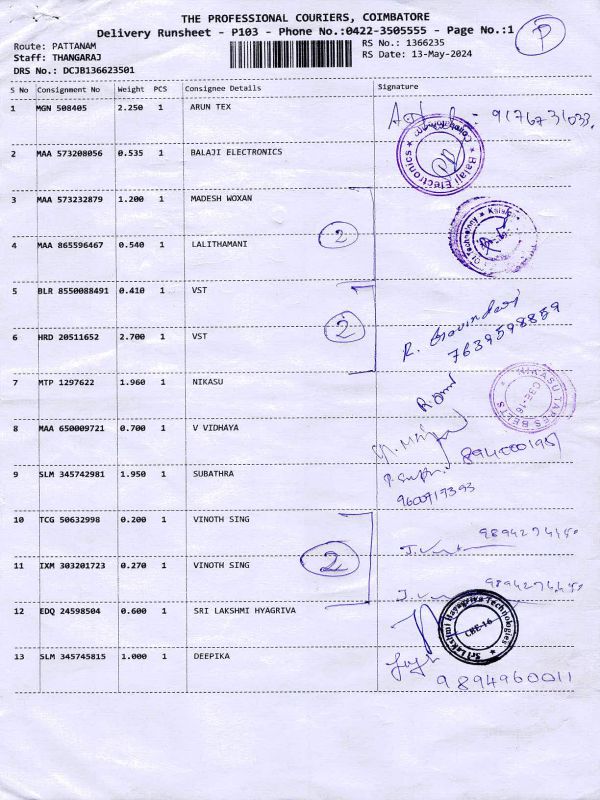 THE PROFESSIONAL COURIERS, COIMBATORE
Delivery Runsheet - P103 - Phone No.:0422-3505555 - Page No.:1
P
Route: PATTANAM
Staff: THANGARAJ
DRS No.: DCJB136623501
RS No.: 1366235
RS Date: 13-May-2024
S No Consignment No Weight PCS Consignee Details Signature
1 MGN 508405 2.250 1 ARUN TEX 9176731033
2 MAA 573208056 0.535 1 BALAJI ELECTRONICS
Balaji Electronics
3 MAA 573232879 1.200 1 MADESH WOXAN
2
4 MAA 865596467 0.540 1 LALITHAMANI
5 BLR 8550088491 0.410 1 VST
2
6 HRD 20511652 2.700 1 VST
R. Govindasi
7639598859
7 MTP 1297622 1.960 1 NIKASU
NIKASU TAPES BELTS
CBE-16
8 MAA 650009721 0.700 1 V VIDHAYA
9 SLM 345742981 1.950 1 SUBATHRA
9600717393
10 TCG 50632998 0.200 1 VINOTH SING
2
11 IXM 303201723 0.270 1 VINOTH SING
12 EDQ 24598504 0.600 1 SRI LAKSHMI HYAGRIVA
Sri Lakshmi Hayagriva Technologies
CBE-16
13 SLM 345745815 1.000 1 DEEPIKA
9894960011